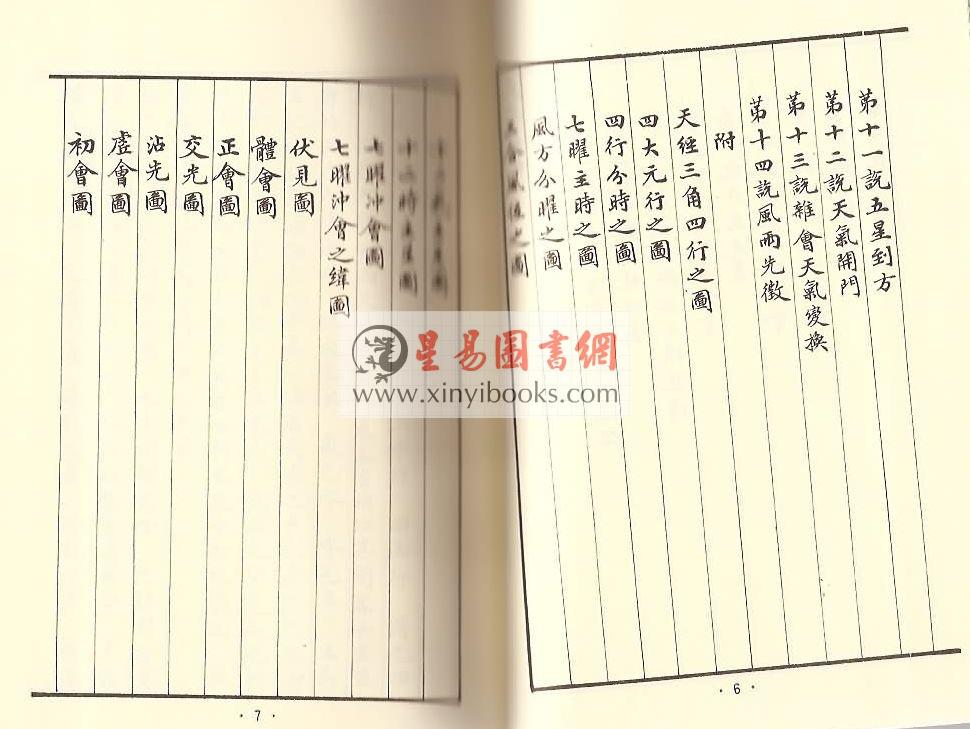 第十一說五星到方
第十二說天氣開門
第十三說雜會天氣變換
第十四說風雨先徵
附
天經三角四行之圖
四大元行之圖
四行分時之圖
七曜主時之圖
風方分曜之圖
之圖
· 6 ·
圖
時主星圖
七曜冲會圖
七曜冲會之緯圖
伏見圖
體會圖
正會圖
交光圖
沾光圖
虛會圖
初會圖
· 7 ·
星易圖書網
www.xinyibooks.com